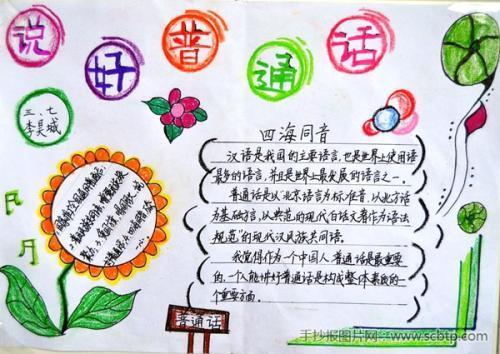 说好普通话
三、七
李昊城
四海同音
汉语是我国的主要语言，也是世界上使用语
最多的语言，并且是世界上最发展的语言之一。
普通话是以“北京语言为标准音，以北方话
为基础方言，以典范的现代白话文著作为语法
规范”的现代汉民族共同语。
我觉得作为一个中国人，普通话是最重要
的，一个人能讲好普通话是构成整体素质的一
个重要方面。
普通话
手抄报图片网 www.scbtp.com